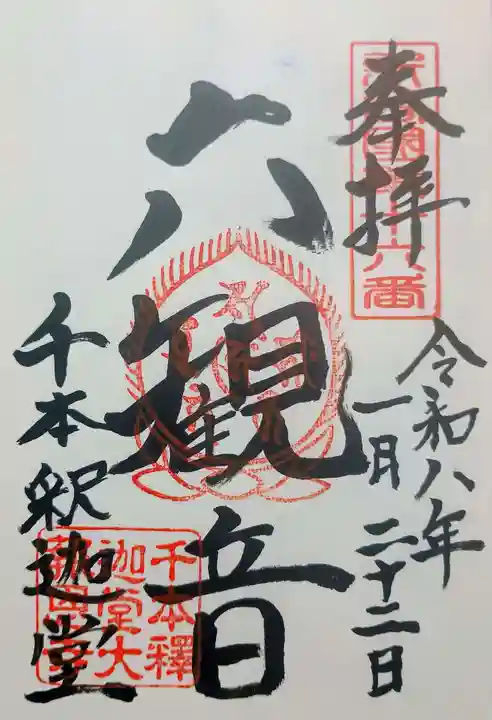 奉拝
令和八年
一月二十二日
六観音
千本釈迦堂
千本釋
迦堂大
報恩寺